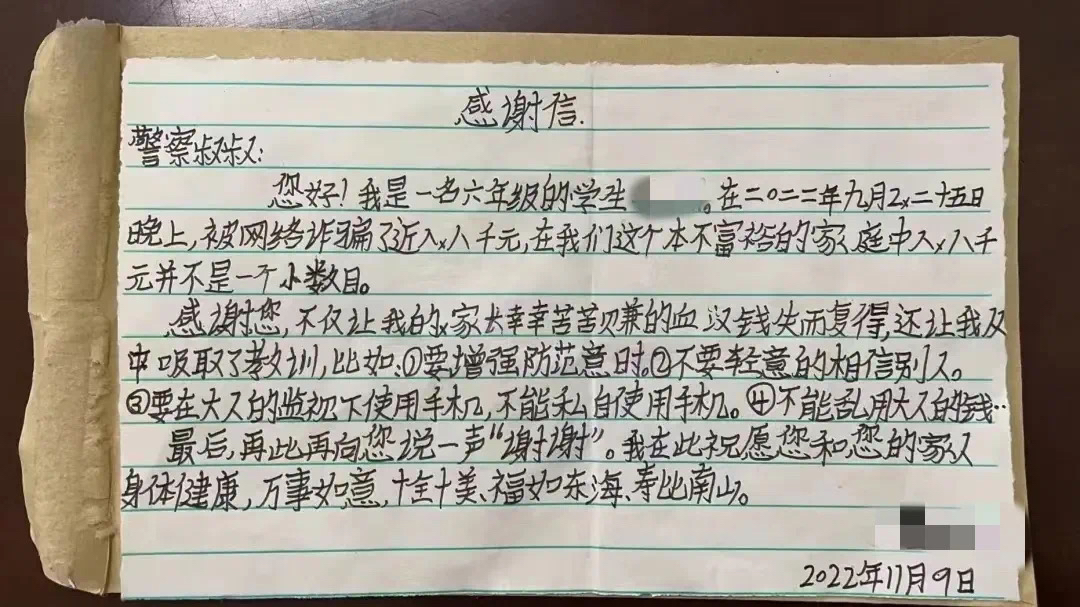 感谢信.
警察叔叔:
您好!我是一名六年级的学生。在二〇二二年九月2x二十五日
晚上,被网络诈骗了近入x八千元,在我们这个本不富裕的家庭中入x八千
元并不是一个小数目。
感谢您,不仅让我的x家大幸幸苦苦赚的血汉钱失而复得,还让我从
中吸取了教训,比如:①要增强防范意时。②不要轻意的相信别人。
③要在大人的监视下使用手机,不能私自使用手机。④不能乱用大人的钱…
最后,再此再向您说一声“谢谢”。我在此祝愿您和您的家人
身体健康,万事如意,十全十美、福如东海、寿比南山。
2022年11月9日